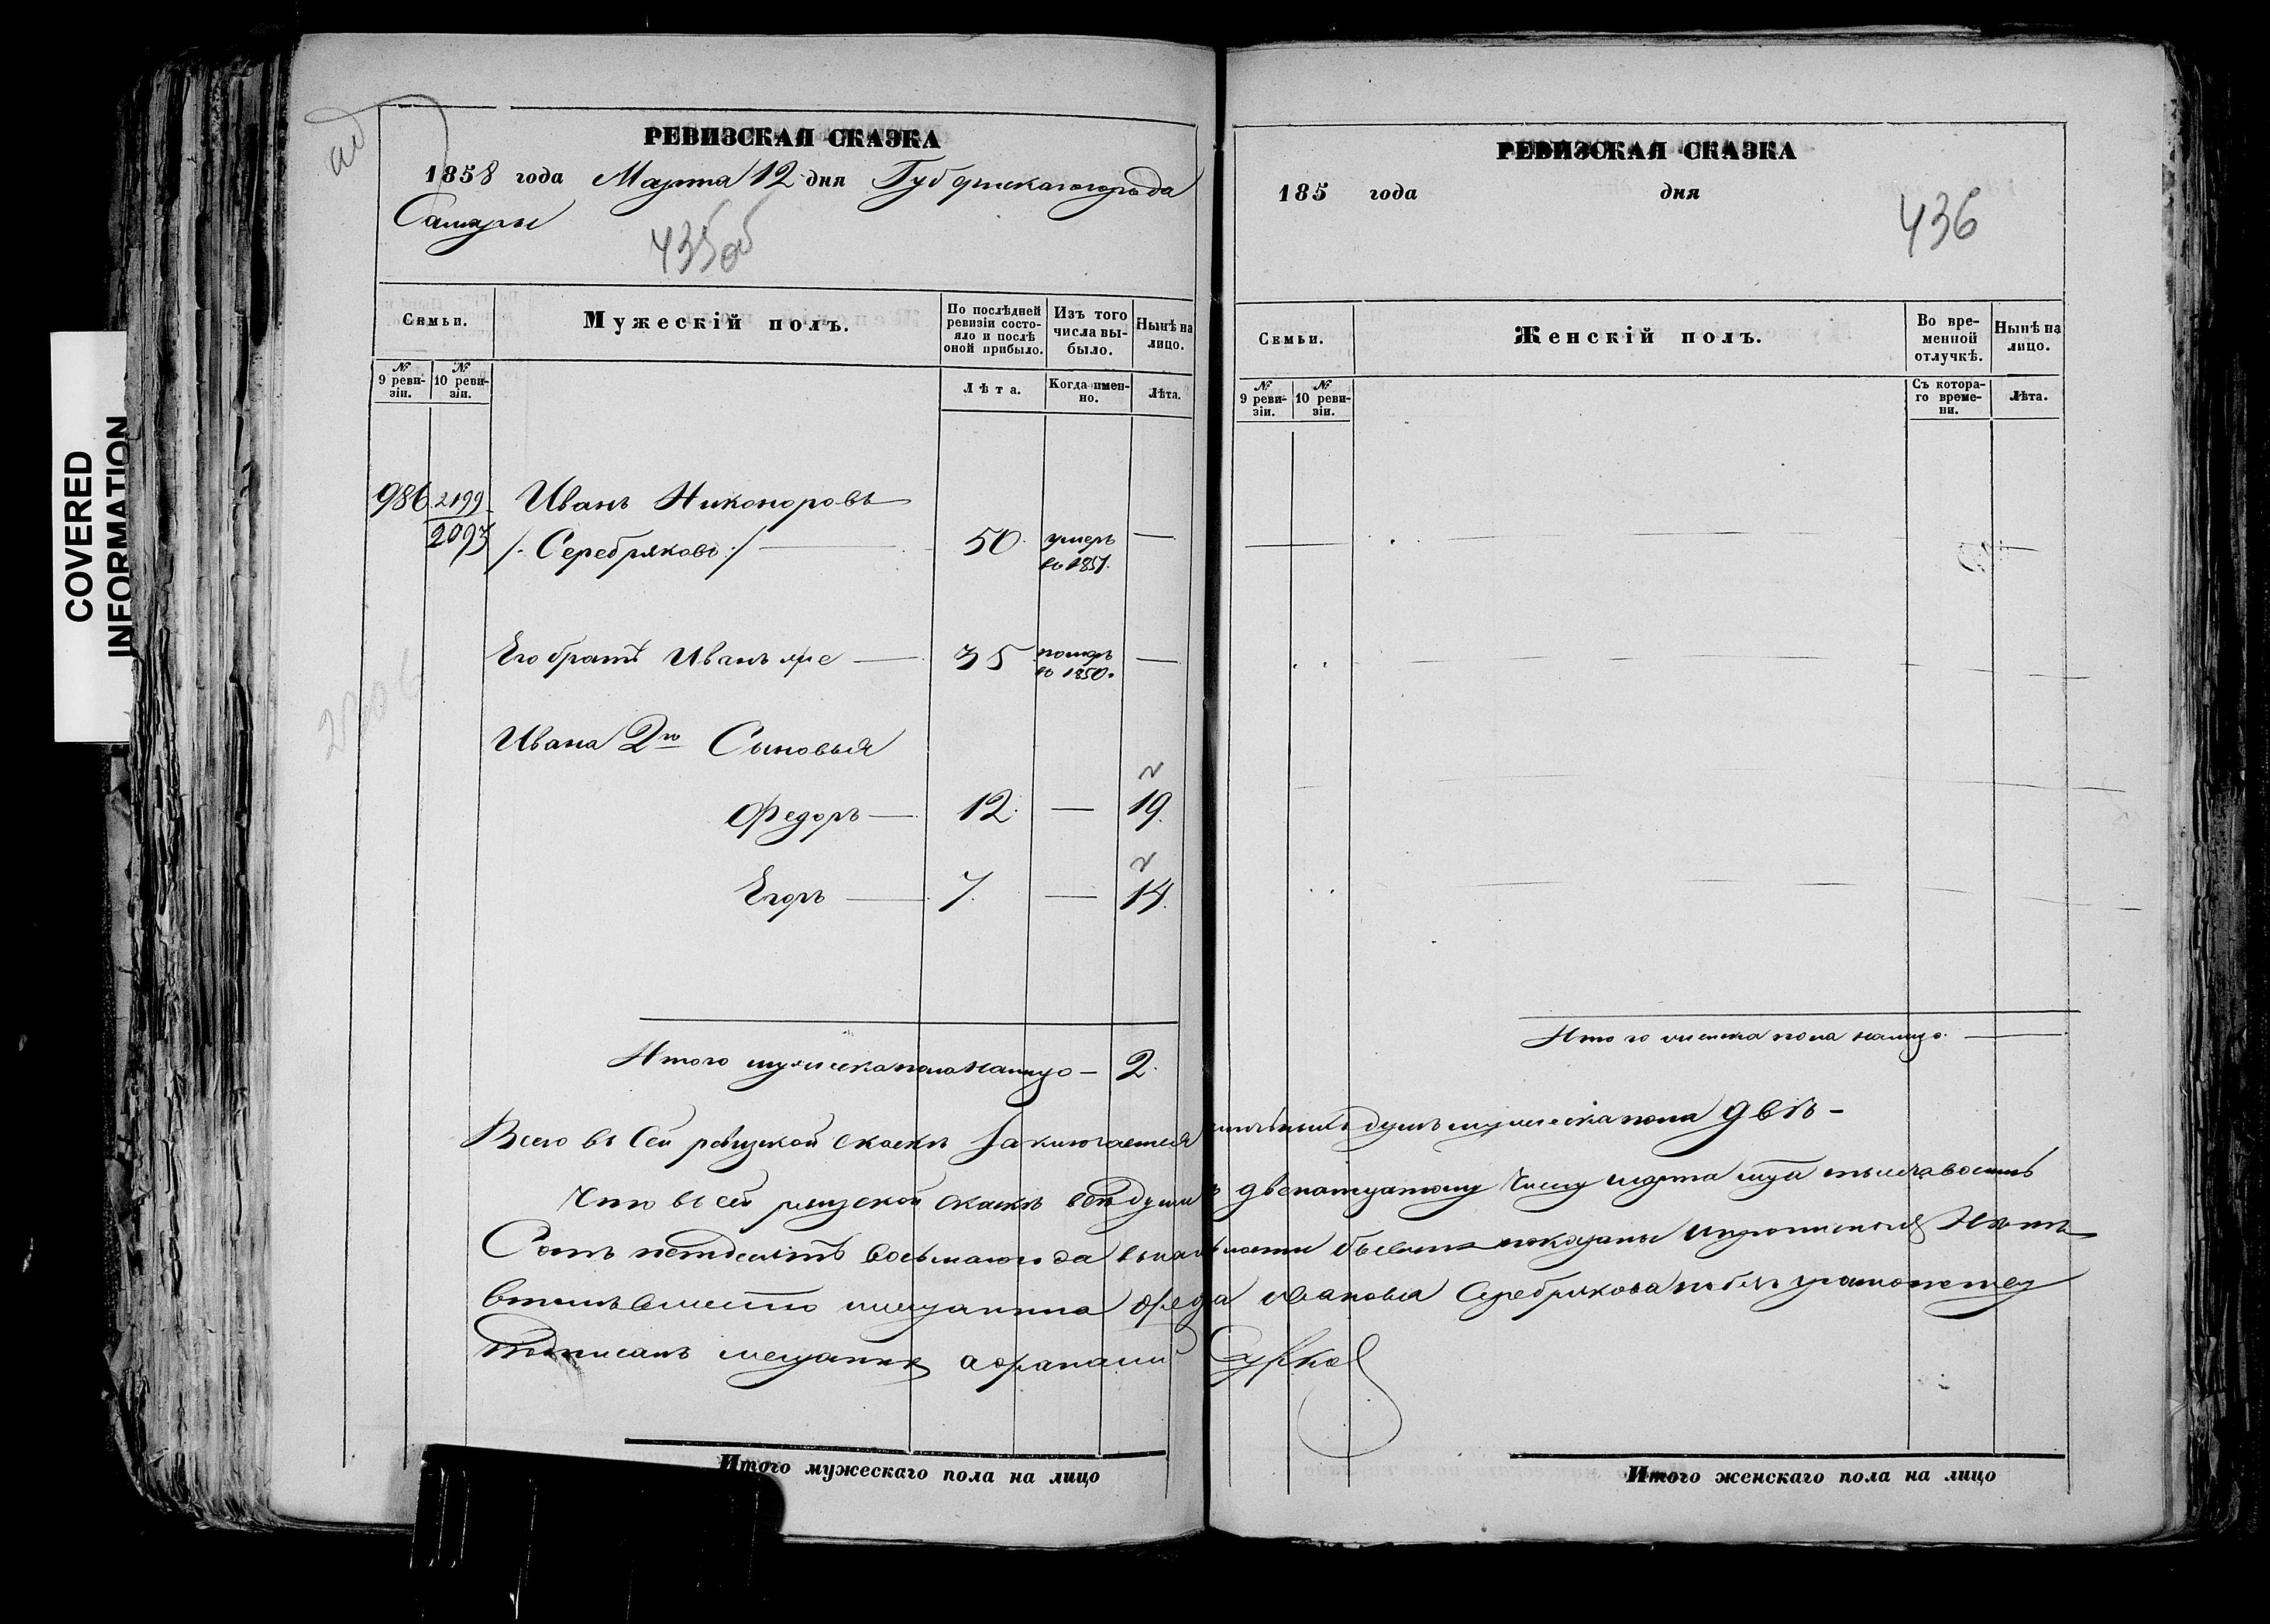 COVERED
INFORMATION
РЕВИЗСКАЯ СКАЗКА
1858 года Марта 12 дня Губернскаго города
Самары
435 об
Семьи.
Мужескій полъ.
По послѣдней ревизіи состояло и послѣ оной прибыло.
Изъ того числа выбыло.
Нынѣ на лицо.
№ 9 ревизіи.
№ 10 ревизіи.
Лѣта.
Когда именно.
Лѣта.
986 2199 Иванъ Никоноровъ
2093 /: Серебряковъ :/ — 50. умеръ въ 1857. —
Его братъ Иванъ же — 35 померъ въ 1850. —
Ивана 2го Сыновья
Федоръ — 12. — 19.
Егоръ — 7. — 14.
Итого мужеска пола налицо — 2.
РЕВИЗСКАЯ СКАЗКА
185 года дня
436
Семьи.
Женскій полъ.
Во временной отлучкѣ.
Нынѣ на лицо.
№ 9 ревизіи.
№ 10 ревизіи.
Съ котораго времени.
Лѣта.
Итого женска пола налицо —
Всего въ Сей ревизской сказкѣ Заключается наличныхъ душъ мужеска пола двѣ —
Что въ сей ревизской сказкѣ всѣ души къ двенатцатому числу марта тысяча восемь
Сотъ петдесятъ восьмаго года въ наличности бывшия показаны и прописныхъ Нетъ
втомъ вместо мещанина Федора Иванова Серебрякова по безграмотству
Подписалъ мещанинъ афанасий Сурков
Итого мужескаго пола на лицо
Итого женскаго пола на лицо